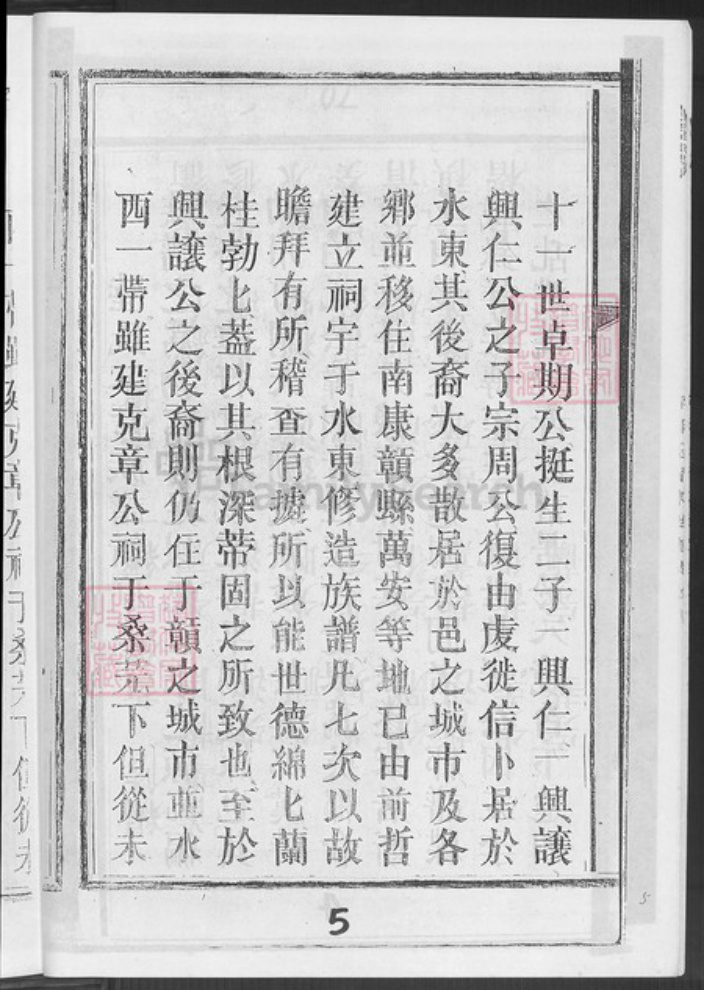 十一世卓期公挺生二子一興仁一興讓
興仁公之子宗周公復由虔徙信卜居於
水東其後裔大多散居於邑之城市及各
鄉並移住南康贛縣萬安等地已由前哲
建立祠宇于水東修造族譜凡七次以故
瞻拜有所稽查有據所以能世德綿匕蘭
桂勃匕蓋以其根深蒂固之所致也至於
興讓公之後裔則仍住于贛之城市並水
西一帶雖建克章公祠于桑下但從未
5